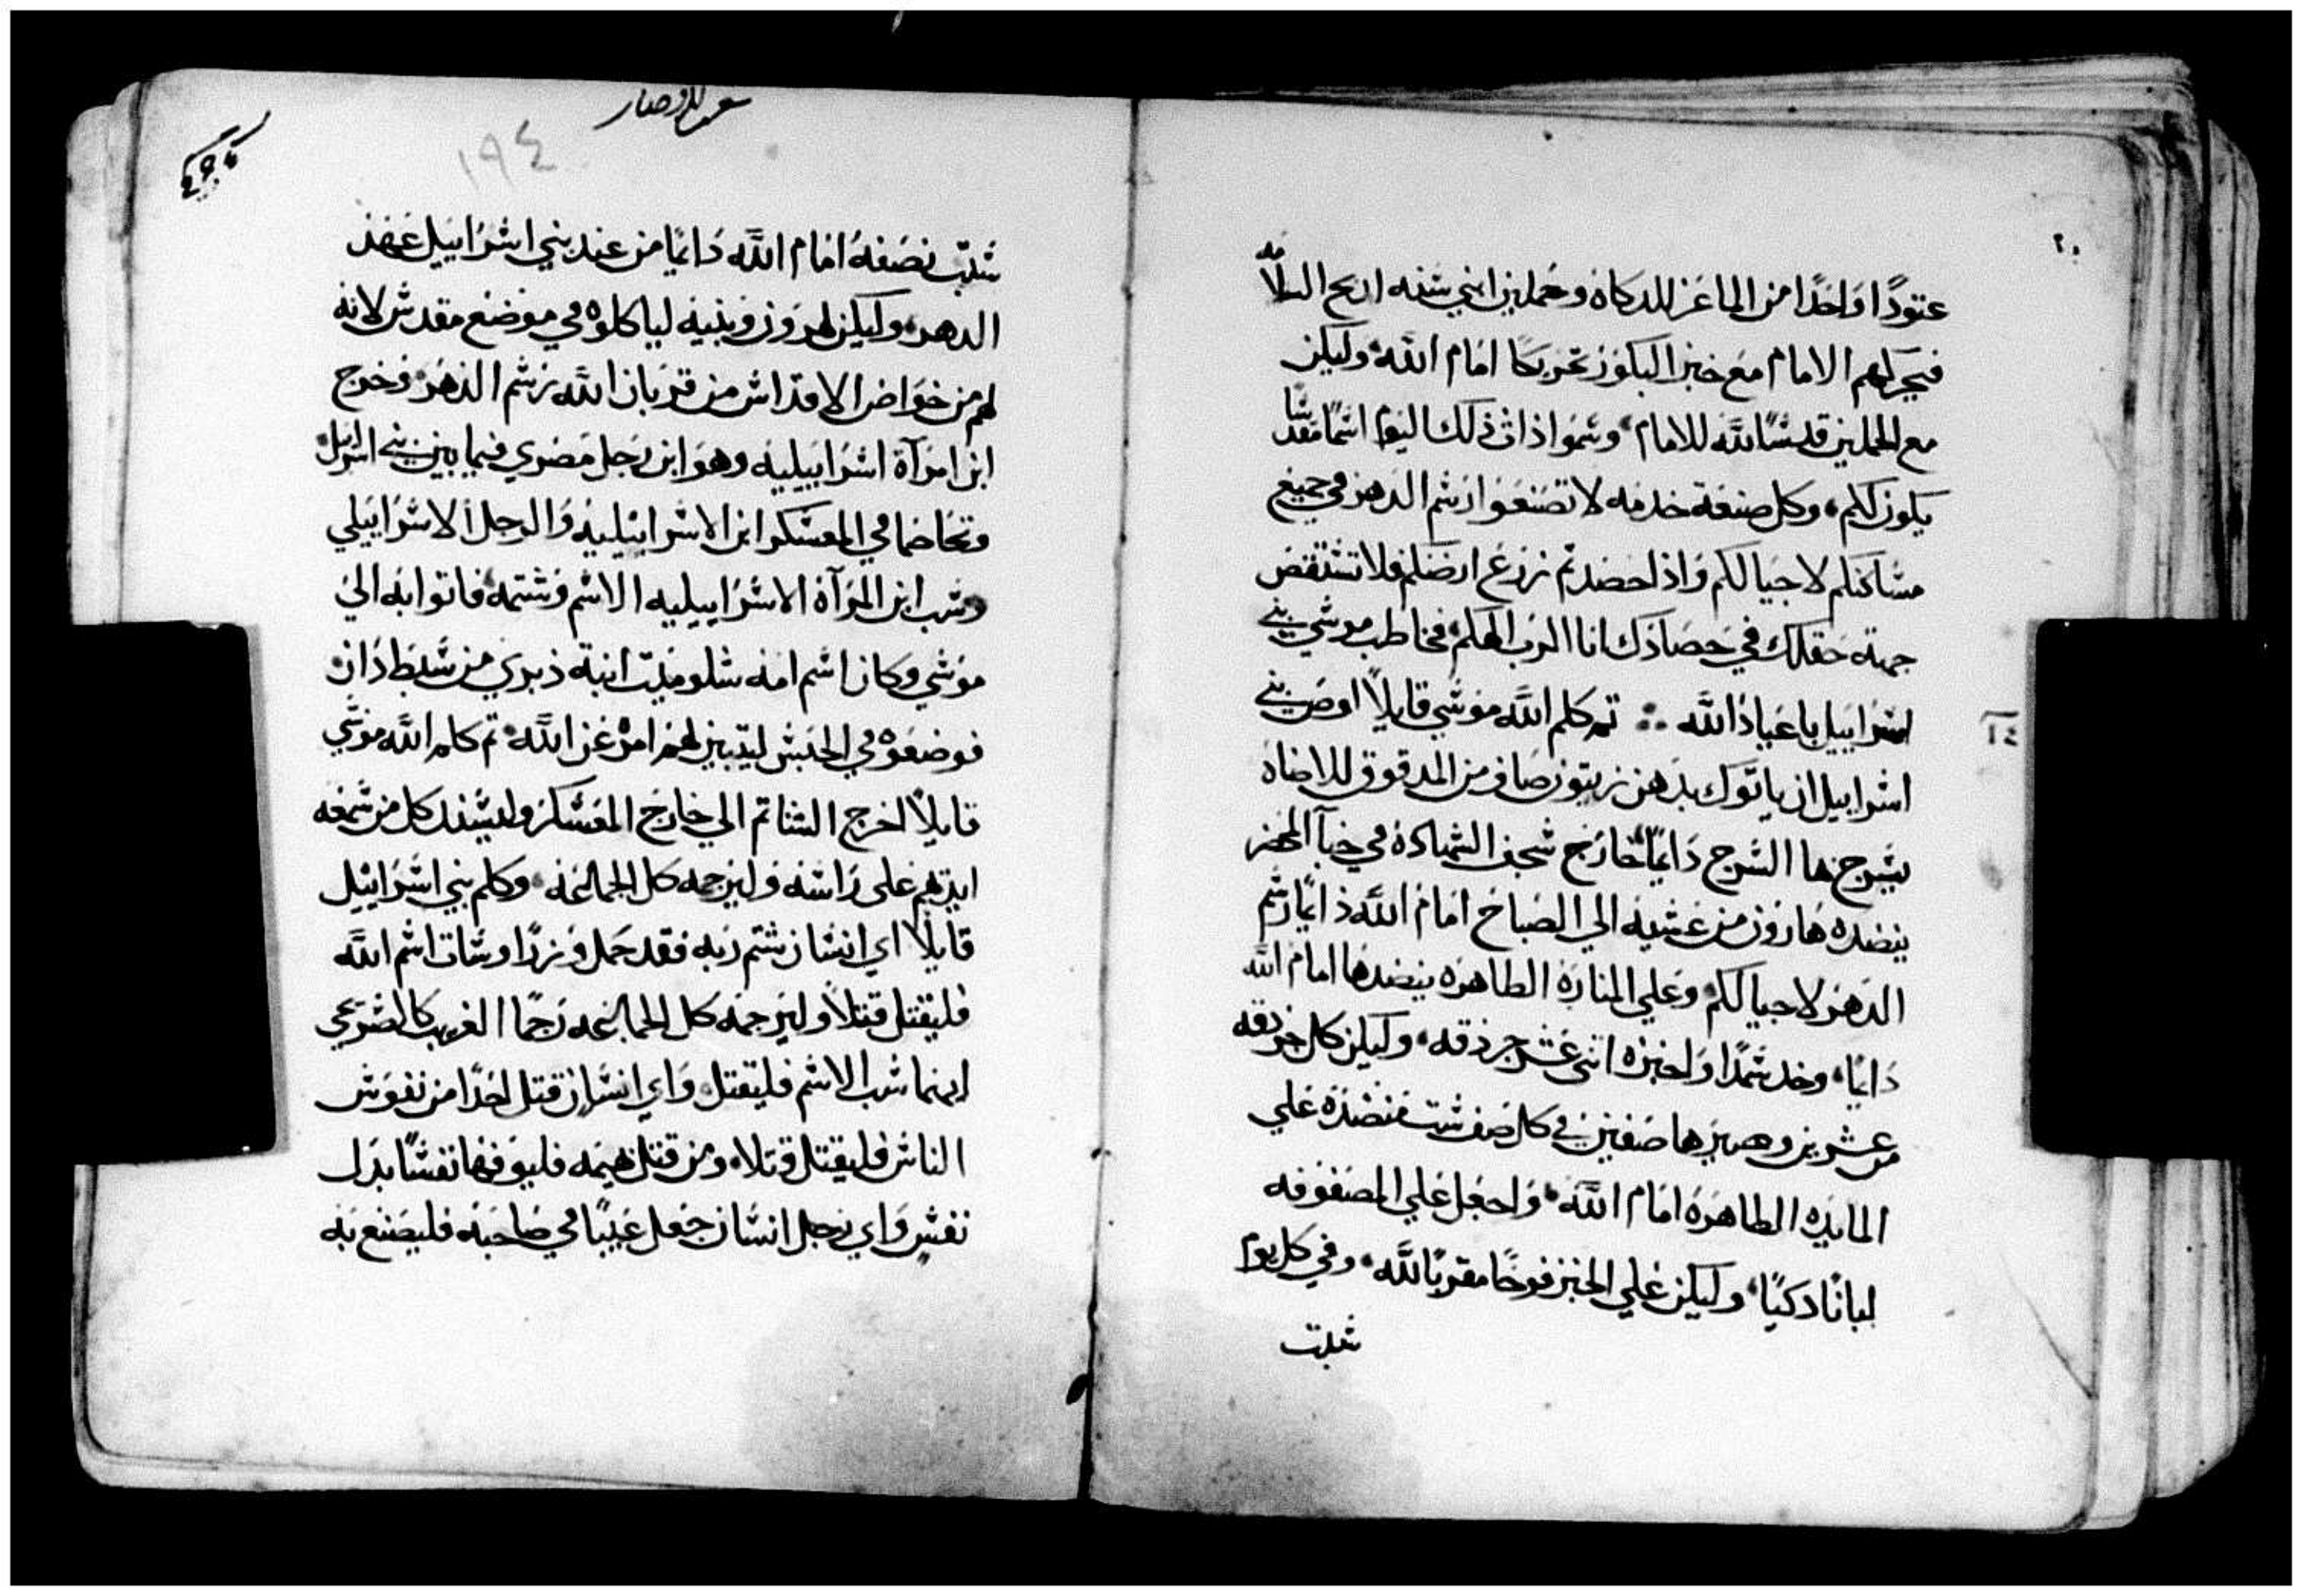 ٢٠
عتودًا واحدًا من الماعز للدكاه وحملين ابني سنه ادبح السلامه
فيحركهم الامام مع خبز البكور تحريكًا امام الله وليكن
مع الحملين قدسًا لله للامام وسموا ذات ذلك اليوم اسمًا مقدسًا
يكون لكم وكل صنعة خدمه لا تصنعوا رسم الدهر في جميع
مساكنكم لاجيالكم واذا حصدتم زرع ارضكم فلا تستقض
جهة حقلك في حصادك انا الرب الهكم فخاطب موسي بني
اسراييل باعياد الله ثم كلم الله موسي قايلًا اوص بني
اسراييل ان ياتوك بدهن زيتون صاف من المدقوق للاضاه
يسرج بها السرج دايمًا خارج سجف الشهادة في خبآ المحضر
ينضده هارون من عشيه الي الصباح امام الله دايمًا رسم
الدهر لاجيالكم وعلي المنارة الطاهره ينضدها امام الله
دايمًا وخد سمدًا واخبزه اثني عشر جردقه وليكن كل جردقه
من عشرين وصيرها صفين في كل صف ست منضده علي
المايده الطاهره امام الله واجعل علي المصفوفه
لبانًا دكيًا وليكن علي الخبز فوحًا مقربًا لله وفي كل يوم
سبت
١٩٤
سبت نصفه امام الله دايمًا من عند بني اسراييل عهد
الدهر وليكن لهرون وبنيه لياكلوه في موضع مقدس لانه
لهم من خواص الاقداس من قربان الله برسم الدهر وخرج
ابن امرآة اسراييليه وهو ابن رجل مصري فيما بين بني اسراييل
وتخاصما في المعسكر ابن الاسراييليه والرجل الاسراييلي
وسب ابن المرآة الاسراييليه الاسم وشتمه فاتوا به الي
موسي وكان اسم امه شلوميت ابنة دبري من سبط دان
فوضعوه في الحبس ليتبين لهم امره عن الله ثم كلم الله موسي
قايلًا اخرج الشاتم الي خارج المعسكر وليسند كل من سمعه
ايديهم علي راسه وليرجمه كل الجماعه وكلم بني اسراييل
قايلًا اي انسان شتم ربه فقد حمل وزرًا وساب اسم الله
فليقتل قتلًا وليرجمه كل الجماعه رجمًا الغريب كالصريحي
ايهما سب الاسم فليقتل واي انسان قتل احدًا من نفوس
الناس فليقتل قتلا ومن قتل بهيمه فليوفها نفسًا بدل
نفس واي رجل انسان جعل عيبًا في صاحبه فليصنع به